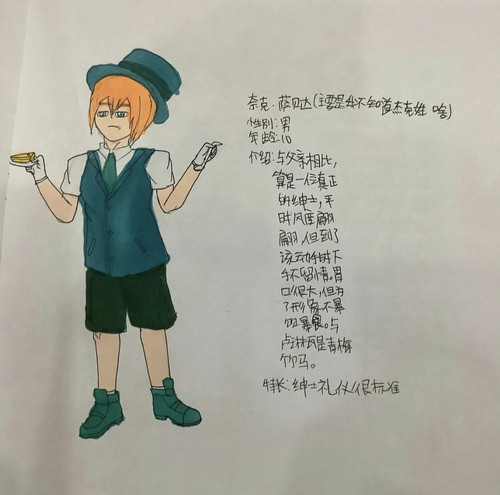 奈克·萨贝达(主要是我不知道杰克姓啥)
性别:男
年龄:10
介绍:与父亲相比,
算是一位真正
的绅士,平
时风度翩
翩,但到了
该动手时下
手不留情。胃
口很大,但为
了形象不暴
饮暴食。与
卢林凤是青梅
竹马。
特长:绅士礼仪很标准